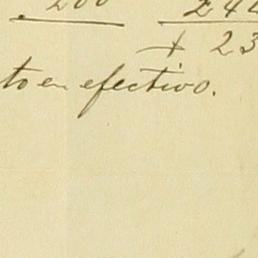 200 244
+ 23
to en efectivo.